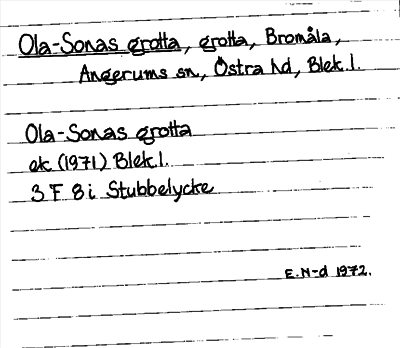 Ola-Sonas grotta, grotta, Bromåla,
Angerums sn, Östra hd, Blek.l.
Ola-Sonas grotta
ek. (1971) Blek.l.
3 F 8 i Stubbelycke
E.N-d 1972.